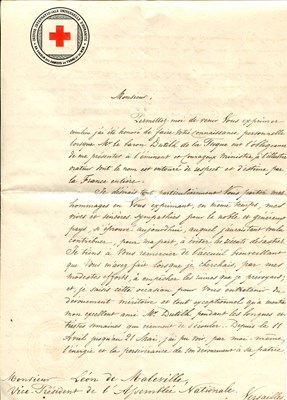 Monsieur,
Permettez-moi de venir Vous exprimer
combien j'ai été honoré de faire votre connaissance personnelle
lorsque Mr le baron Dutilh de la Tuque eut l'obligeance
de me présenter à l'éminent et courageux ministre, à l'illustre
orateur dont le nom est entouré de respect et d'estime par
la France entière.
Je désirais tout particulièrement Vous porter mes
hommages en Vous exprimant, en même temps, mes
vives et sincères sympathies pour le noble et généreux
pays, si éprouvé aujourd'hui, auquel j'aurais tant voulu
contribuer, pour ma part, à éviter de récents désastres.
Je tiens à Vous remercier de l'accueil
que Vous m'avez fait lorsque je cherchais, par mes
modestes efforts, à empêcher les ruines que je prévoyais;
et je saisis cette occasion pour Vous entretenir du
dévouement méritoire et tout exceptionnel qu'a montré
mon excellent ami Mr Dutilh, pendant les longues et
tristes semaines qui viennent de s'écouler. Depuis le 11
Avril jusqu'au 21 Mai, j'ai pu voir, par moi-même,
l'énergie et la persévérance de son dévouement à sa patrie.
Monsieur Léon de Maleville,
Vice-Président de l'Assemblée Nationale,
Versailles